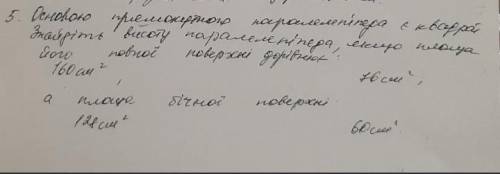 5. Основою прямокутного паралелепіпеда є квадрат
Знайдіть висоту паралелепіпеда, якщо площа
його повної поверхні дорівнює:
160 см², 76 см²,
а площа бічної поверхні
128 см² 60 см²